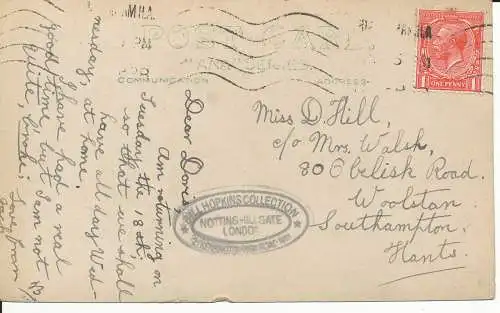 POST CARD
COMMUNICATION
ADDRESS
Dear Doris
Am returning on
Tuesday the 18th,
so that we shall
have all day Wed-
nesday, at home.
I have had a real
good time but I am not
quite broke.
Love from
Miss D. Hill,
c/o Mrs. Walsh,
80 Obelisk Road.
Woolstan
Southampton.
Hants.
ONE PENNY
BILL HOPKINS COLLECTION
NOTTING HILL GATE
LONDON